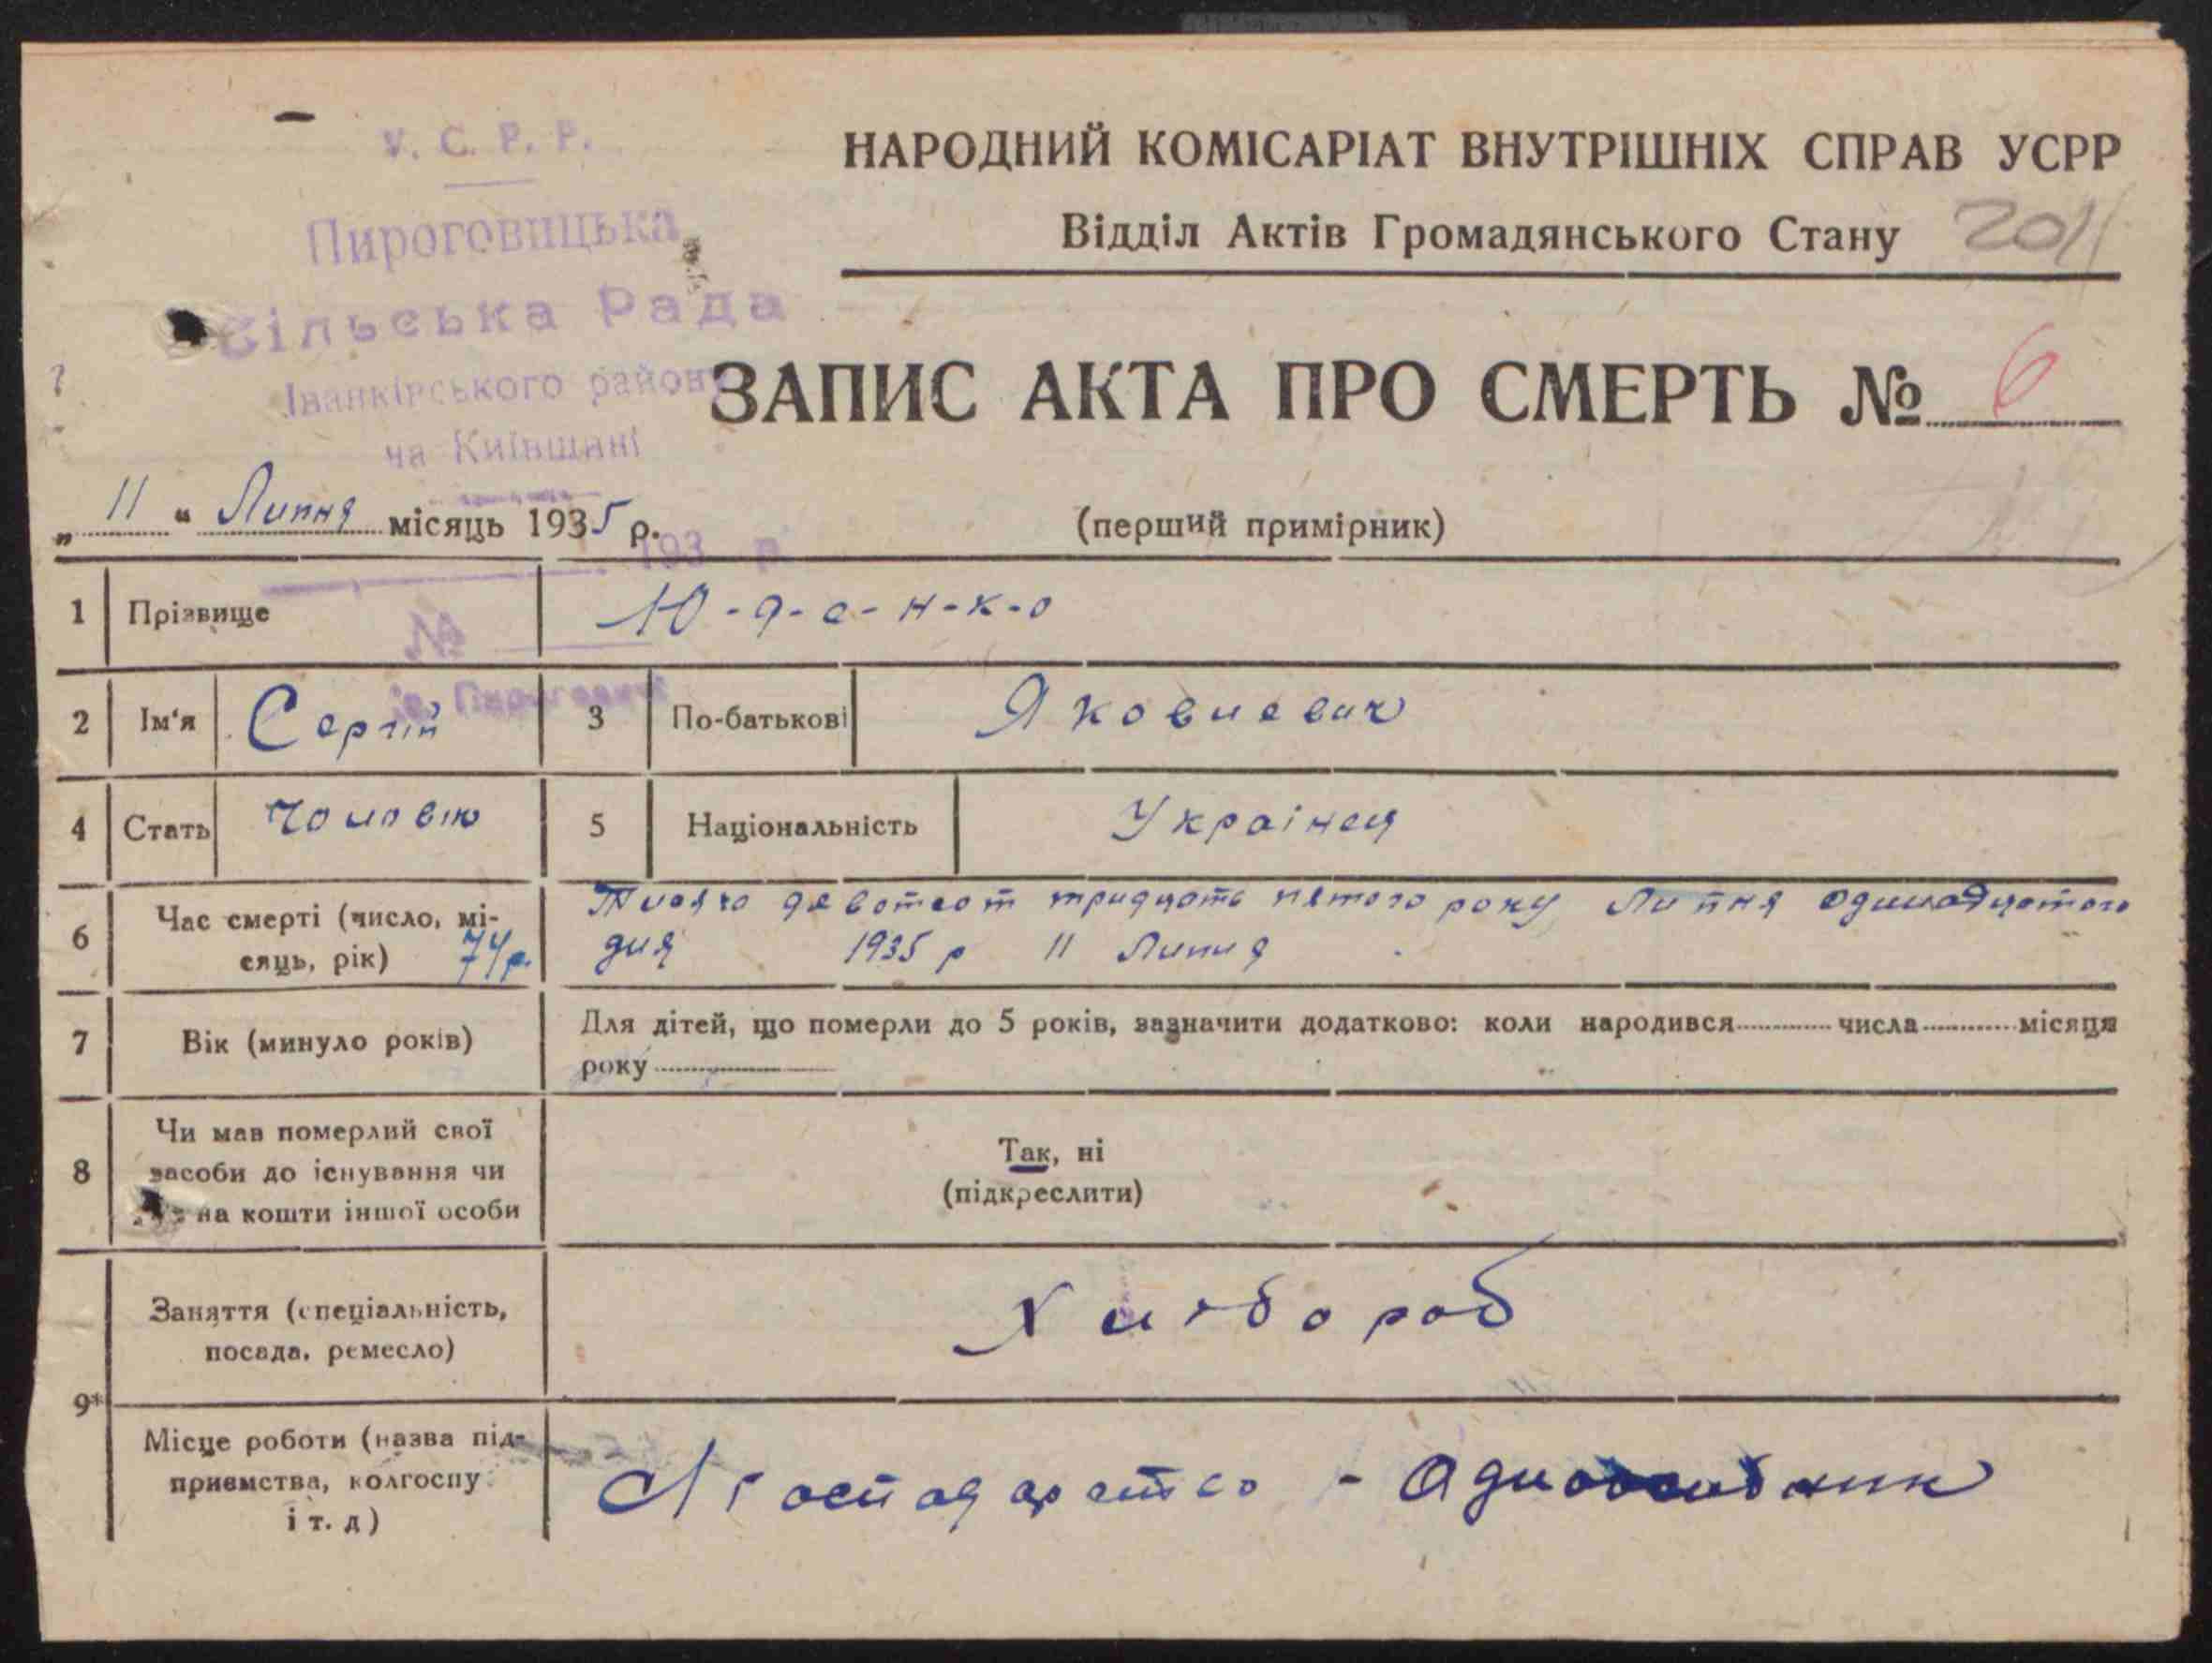 У. С. Р. Р.
Пироговицька
Сільська Рада
Іванківського району
на Київщині
193 р.
№
НАРОДНИЙ КОМІСАРІАТ ВНУТРІШНІХ СПРАВ УСРР
Відділ Актів Громадянського Стану 2011
ЗАПИС АКТА ПРО СМЕРТЬ № 6
„ 11 “ Липня місяць 1935 р.
(перший примірник)
1 Прізвище Ю-д-е-н-к-о
2 Ім‘я Сергій 3 По-батькові Яковлевич
4 Стать Чоловік 5 Національність Українець
6 Час смерті (число, мі-
сяць, рік) 74 р.
Тисяча девятсот тридцять пятого року Липня одинадцятого
дня 1935 р 11 Липня
7 Вік (минуло років)
Для дітей, що померли до 5 років, зазначити додатково: коли народився числа місяця
року
8 Чи мав померлий свої
засоби до існування чи
на кошти іншої особи
Так, ні
(підкреслити)
9*
Заняття (спеціальність,
посада, ремесло)
Хлібороб
Місце роботи (назва під-
приємства, колгоспу
і т. д)
господарство - Одноосібник